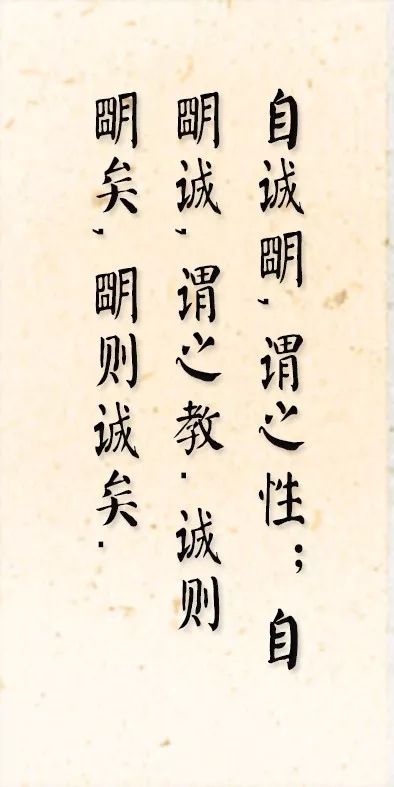 自诚明，谓之性；自
明诚，谓之教．诚则
明矣，明则诚矣．